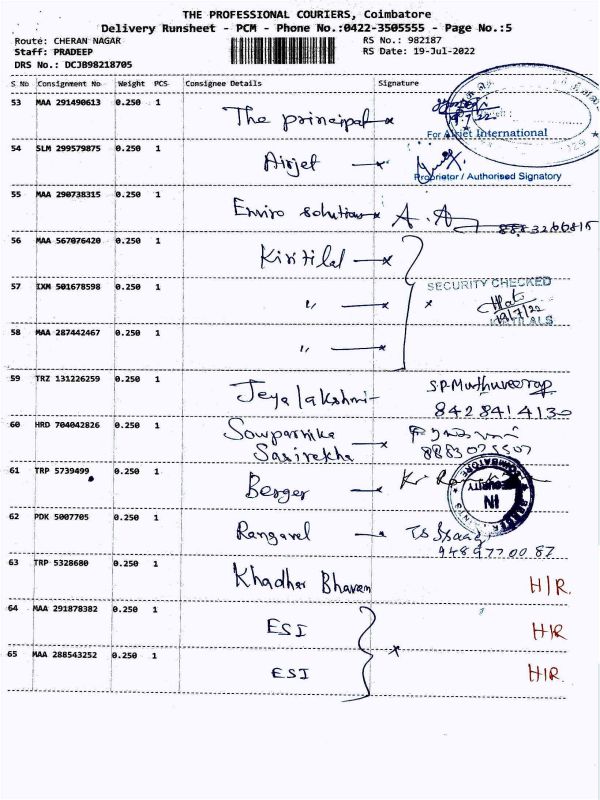 THE PROFESSIONAL COURIERS, Coimbatore
Delivery Runsheet - PCM - Phone No.:0422-3505555 - Page No.:5
Route: CHERAN NAGAR RS No.: 982187
Staff: PRADEEP RS Date: 19-Jul-2022
DRS No.: DCJB98218705
S No Consignment No Weight PCS Consignee Details Signature
53 MAA 291490613 0.250 1 The principal
For Airjet International
54 SLM 299579875 0.250 1 Airjet
Proprietor / Authorised Signatory
55 MAA 290738315 0.250 1 Enviro solutions A.A
56 MAA 567076420 0.250 1 Kiritilal
57 IXM 501678598 0.250 1 "
SECURITY CHECKED
19/7/22
58 MAA 287442467 0.250 1 "
59 TRZ 131226259 0.250 1 Jeyalakshmi
8428414130
60 HRD 704042826 0.250 1 Sowparnika
Sasirekha 8883075507
61 TRP 5739499 0.250 1 Berger
IN
SECURITY
62 PDK 5007705 0.250 1 Rangavel
9489770087
63 TRP 5328680 0.250 1 Khadhar Bhavan HIR.
64 MAA 291878382 0.250 1 ESI HIR
65 MAA 288543252 0.250 1 ESI HIR.